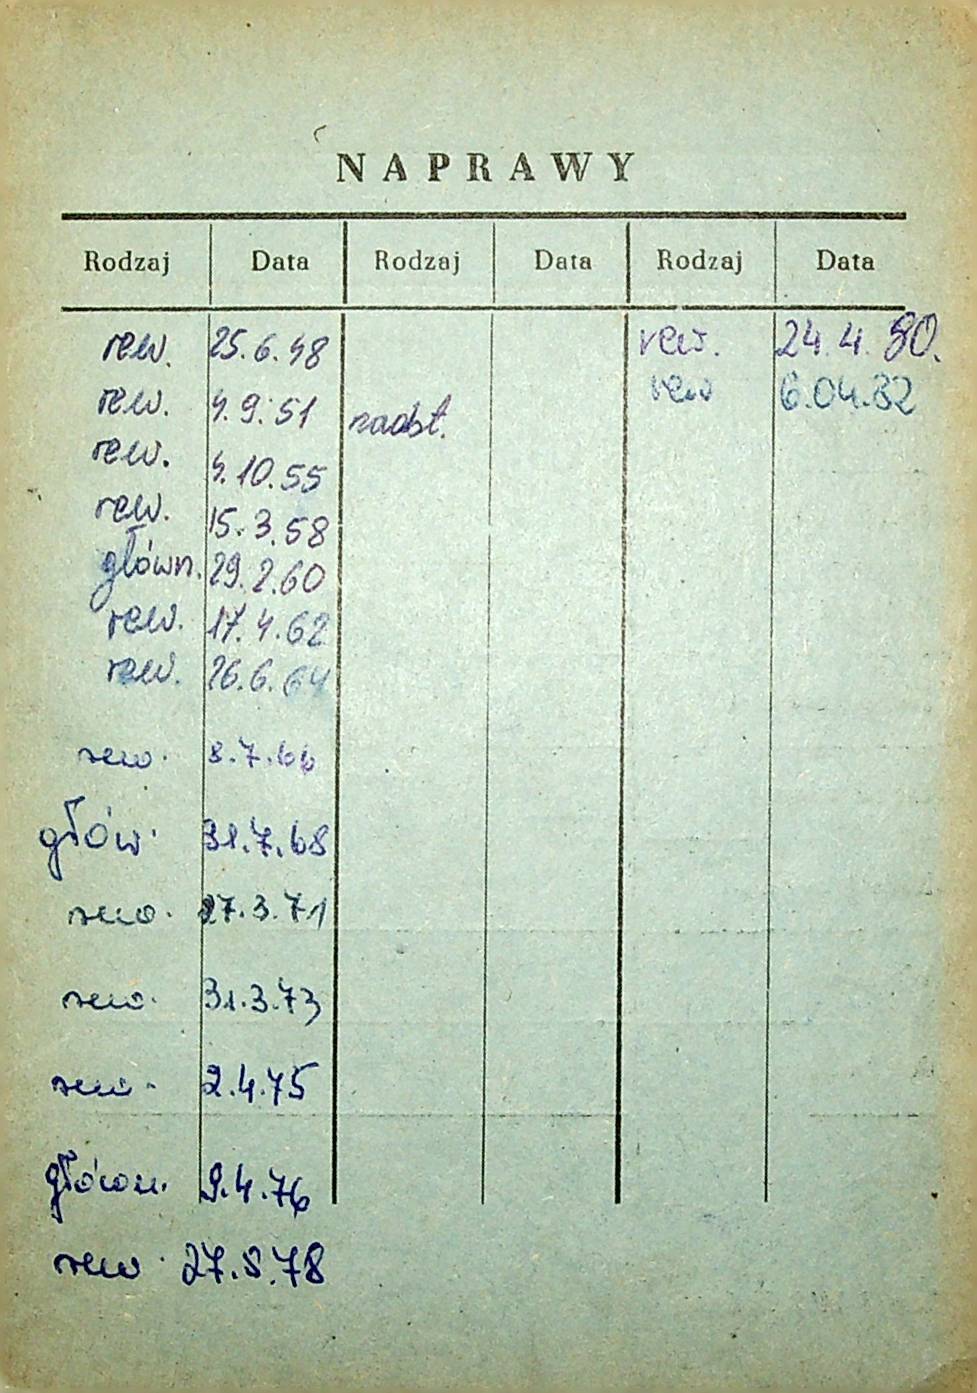 NAPRAWY
Rodzaj Data Rodzaj Data Rodzaj Data
rew. 25.6.48 rew. 24.4.80.
rew. 4.9.51 nadbł. rew 6.04.82
rew. 4.10.55
rew. 15.3.58
główn. 29.2.60
rew. 17.4.62
rew. 26.6.64
rew. 8.7.66
głów. 31.7.68
rew. 27.3.71
rew. 31.3.73
rew. 2.4.75
główn. 9.4.76
rew. 27.5.78